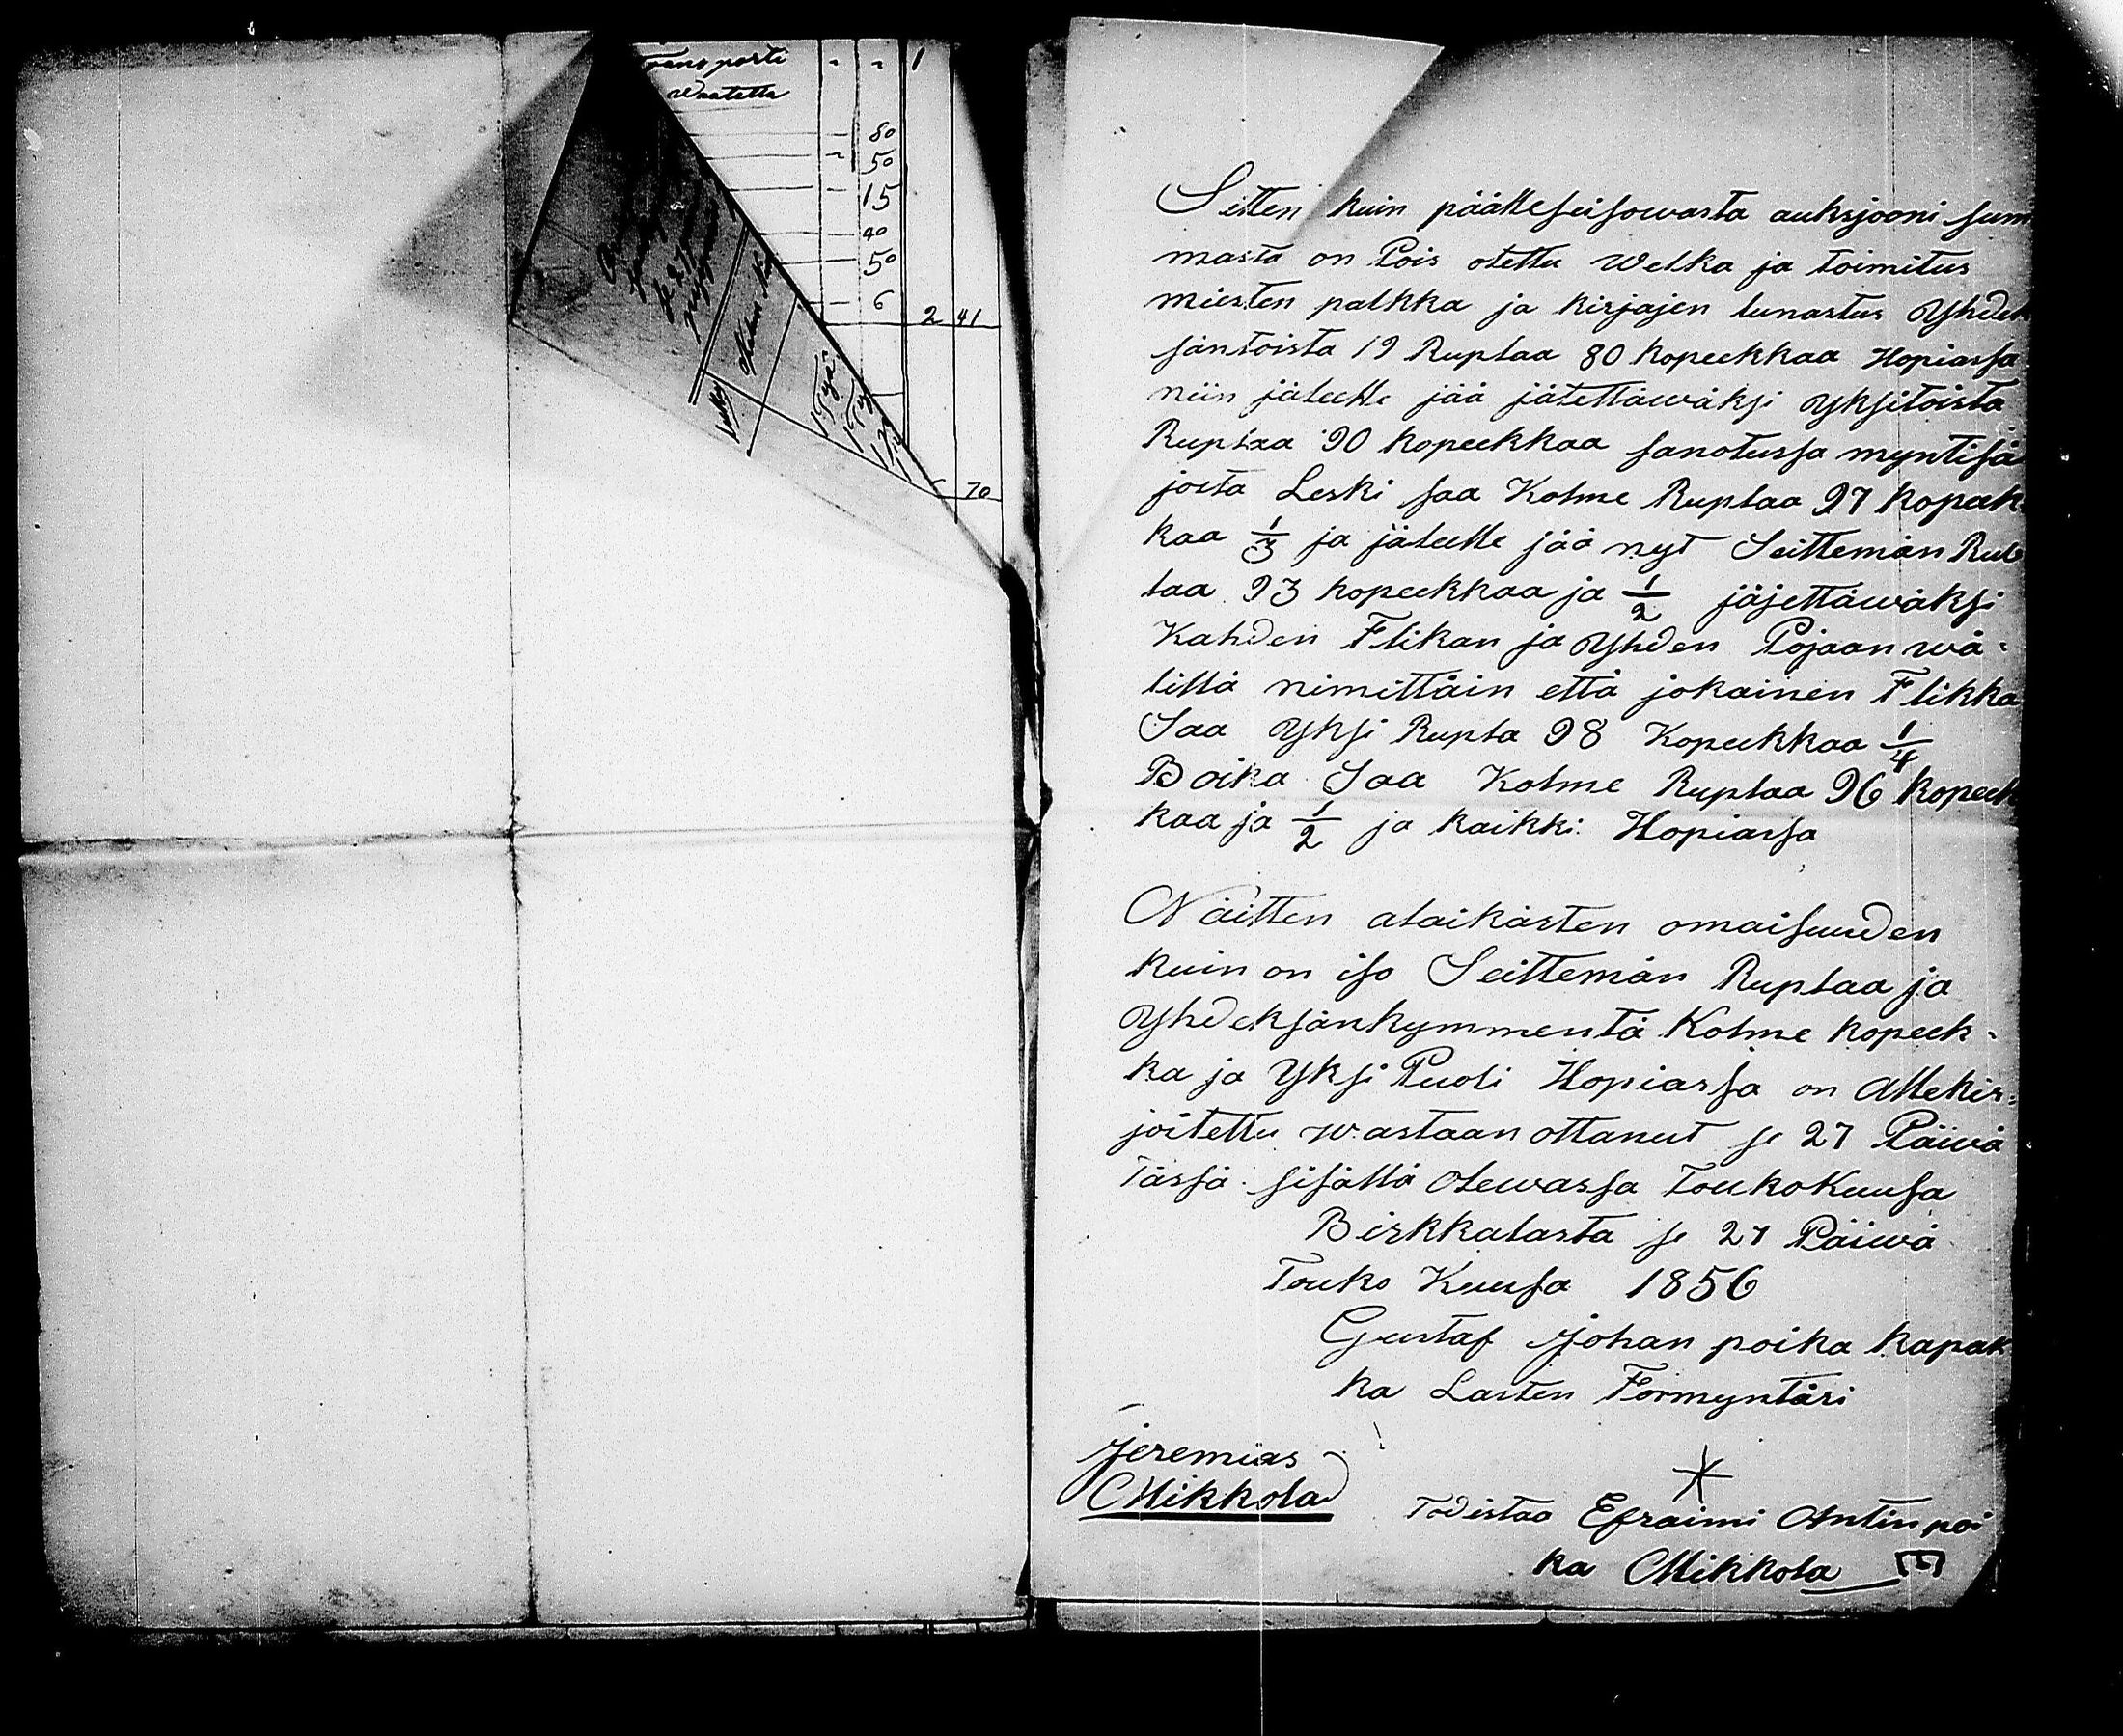 Transporti - - 1
Waatetta
80
- 50
- 15
- 40
- 50
- 6 2 41
70
Sitten kuin päälleseisowasta auksjooni sum
masta on Pois otettu Welka ja toimitus
miesten palkka ja kirjajen lunastus Yhdek
säntoista 19 Ruplaa 80 kopeekkaa Hopiassa
niin jäleelle jää jätettäwäksi Yksitoista
Ruplaa 90 kopeekkaa sanotussa myntisä
josta Leski saa Kolme Ruplaa 97 kopeek
kaa 1/3 ja jäleelle jää nyt Seittemän Rub
laa 93 kopeekkaa ja 1/2 jäjettäwäksi
Kahden Flikan ja Yhden Pojaan wä-
lillä nimittäin että jokainen Flikka
Saa Yksi Rupla 98 Kopeekkaa 1/4
Boika Saa Kolme Ruplaa 96 kopeek
kaa ja 1/2 ja kaikki Hopiassa
Näitten alaikästen omaisuuden
kuin on iso Seittemän Ruplaa ja
Yhdeksänkymmentä Kolme kopeek-
ka ja Yksi Puoli Hopiassa on Allekir-
joitettu wastaan ottanut se 27 Päiwä
tässä sisällä olewassa ToukoKuusa
Birkkalasta se 27 Päiwä
Touko Kuusa 1856
Gustaf Johan poika Kapak
ka Lasten Formyntäri
Jeremias
Mikkola
Todistaa Efraimi Antin poi
ka Mikkola